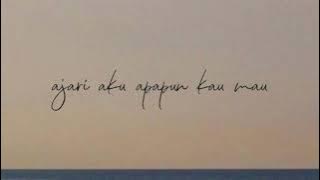 ajari aku apapun kau mau